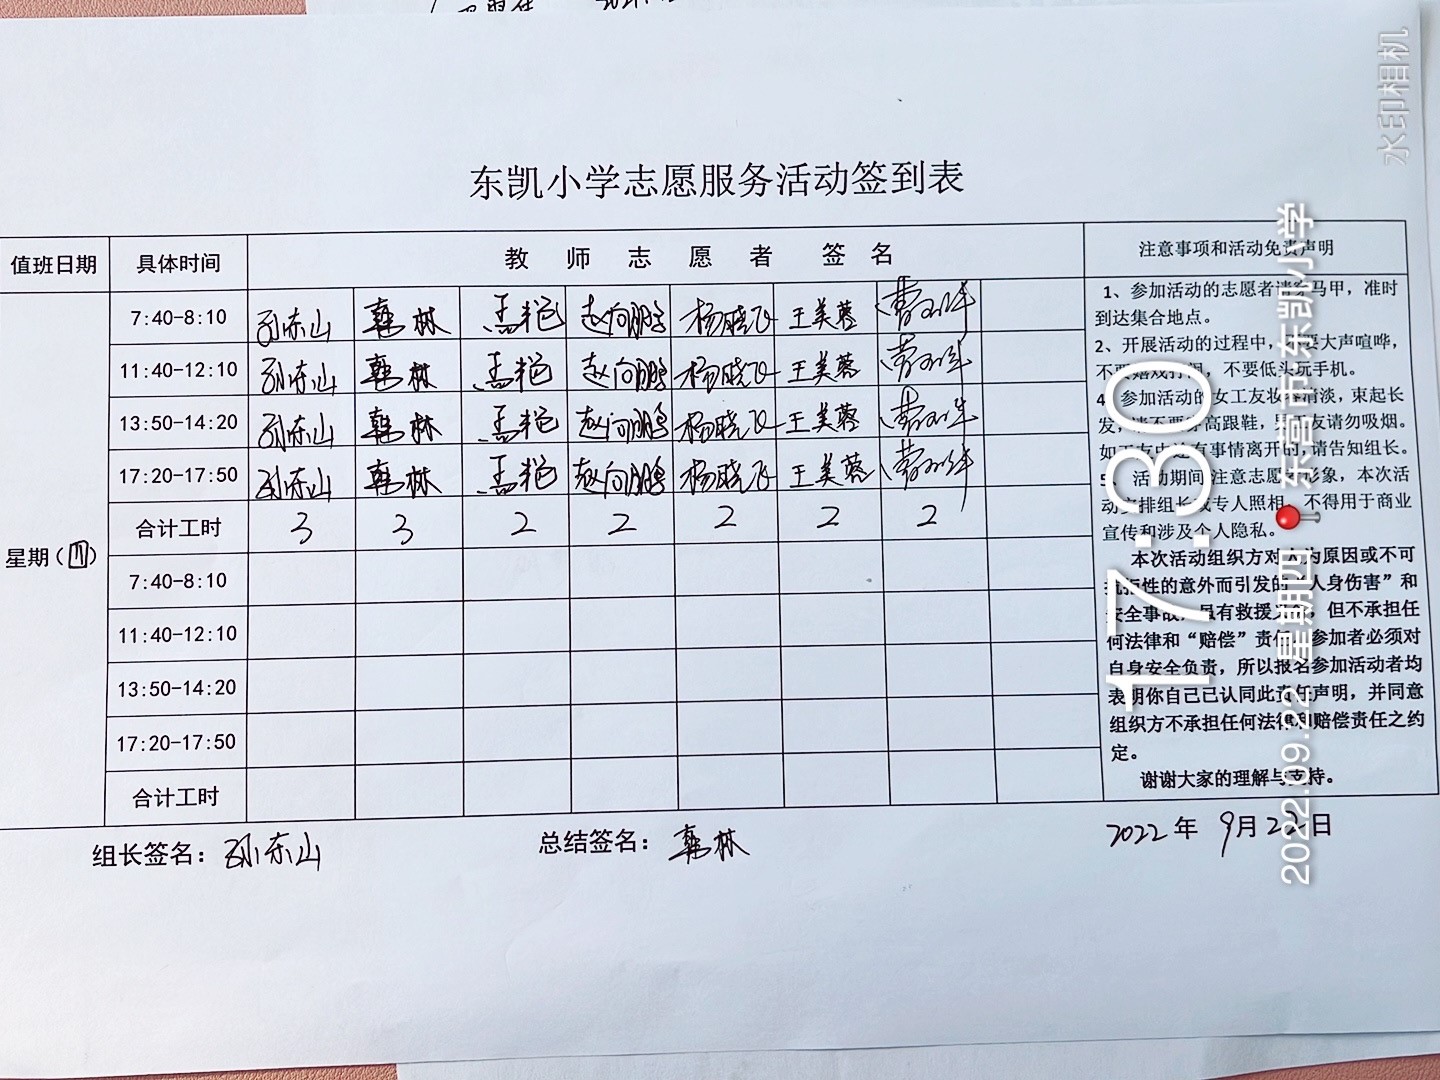 东凯小学志愿服务活动签到表
值班日期 具体时间 教师志愿者签名 注意事项和活动免责声明
7:40-8:10 孙东山 韩林 孟艳 赵向鹏 杨晓飞 王美蓉
11:40-12:10 孙东山 韩林 孟艳 赵向鹏 杨晓飞 王美蓉
13:50-14:20 孙东山 韩林 孟艳 赵向鹏 杨晓飞 王美蓉
17:20-17:50 孙东山 韩林 孟艳 赵向鹏 杨晓飞 王美蓉
合计工时 3 3 2 2 2 2 2
星期(四)
7:40-8:10
11:40-12:10
13:50-14:20
17:20-17:50
合计工时
1、参加活动的志愿者请穿马甲，准时
到达集合地点。
2、开展活动的过程中，不要大声喧哗，
不要嬉戏打闹，不要低头玩手机。
4、参加活动的女工友妆容清淡，束起长
发，请不要穿高跟鞋，男工友请勿吸烟。
如工友中途有事情离开的，请告知组长。
5、活动期间注意志愿者形象，本次活
动安排组长或专人照相，不得用于商业
宣传和涉及个人隐私。
本次活动组织方对人为原因或不可
抗拒性的意外而引发的“人身伤害”和
安全事故，虽有救援义务，但不承担任
何法律和“赔偿”责任。参加者必须对
自身安全负责，所以报名参加活动者均
表明你自己已认同此责任声明，并同意
组织方不承担任何法律和赔偿责任之约
定。
谢谢大家的理解与支持。
组长签名：孙东山 总结签名：韩林 2022年9月22日
水印相机
17:30
2022.09.22 星期四 东营市东凯小学